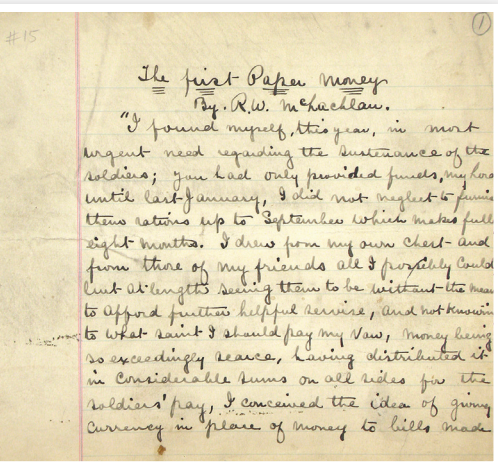 #15
1
The first Paper Money
By. R.W. McLachlan.
"I found myself, this year, in most
urgent need regarding the sustenance of the
soldiers; you had only provided funds, my
until last January, I did not neglect to
them rations up to September which makes full
eight months. I drew from my own chest and
from those of my friends all I possibly could
but at length seeing them to be without the
to afford further helpful servise, and not
to what saint I should pay my vow, money being
so exceedingly scarce, having distributed it
in considerable sums on all sides for the
soldiers' pay, I conceived the idea of
currency in place of money to bills made